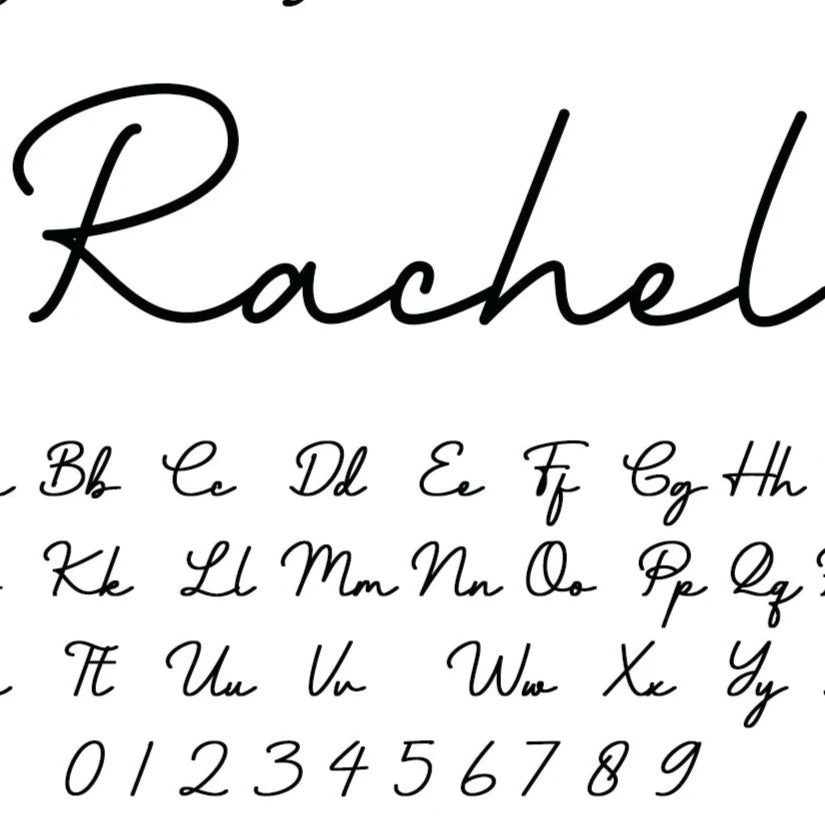 Rachel
Bb Cc Dd Ee Ff Gg Hh
Kk Ll Mm Nn Oo Pp Qq
Tt Uu Vv Ww Xx Yy
0 1 2 3 4 5 6 7 8 9